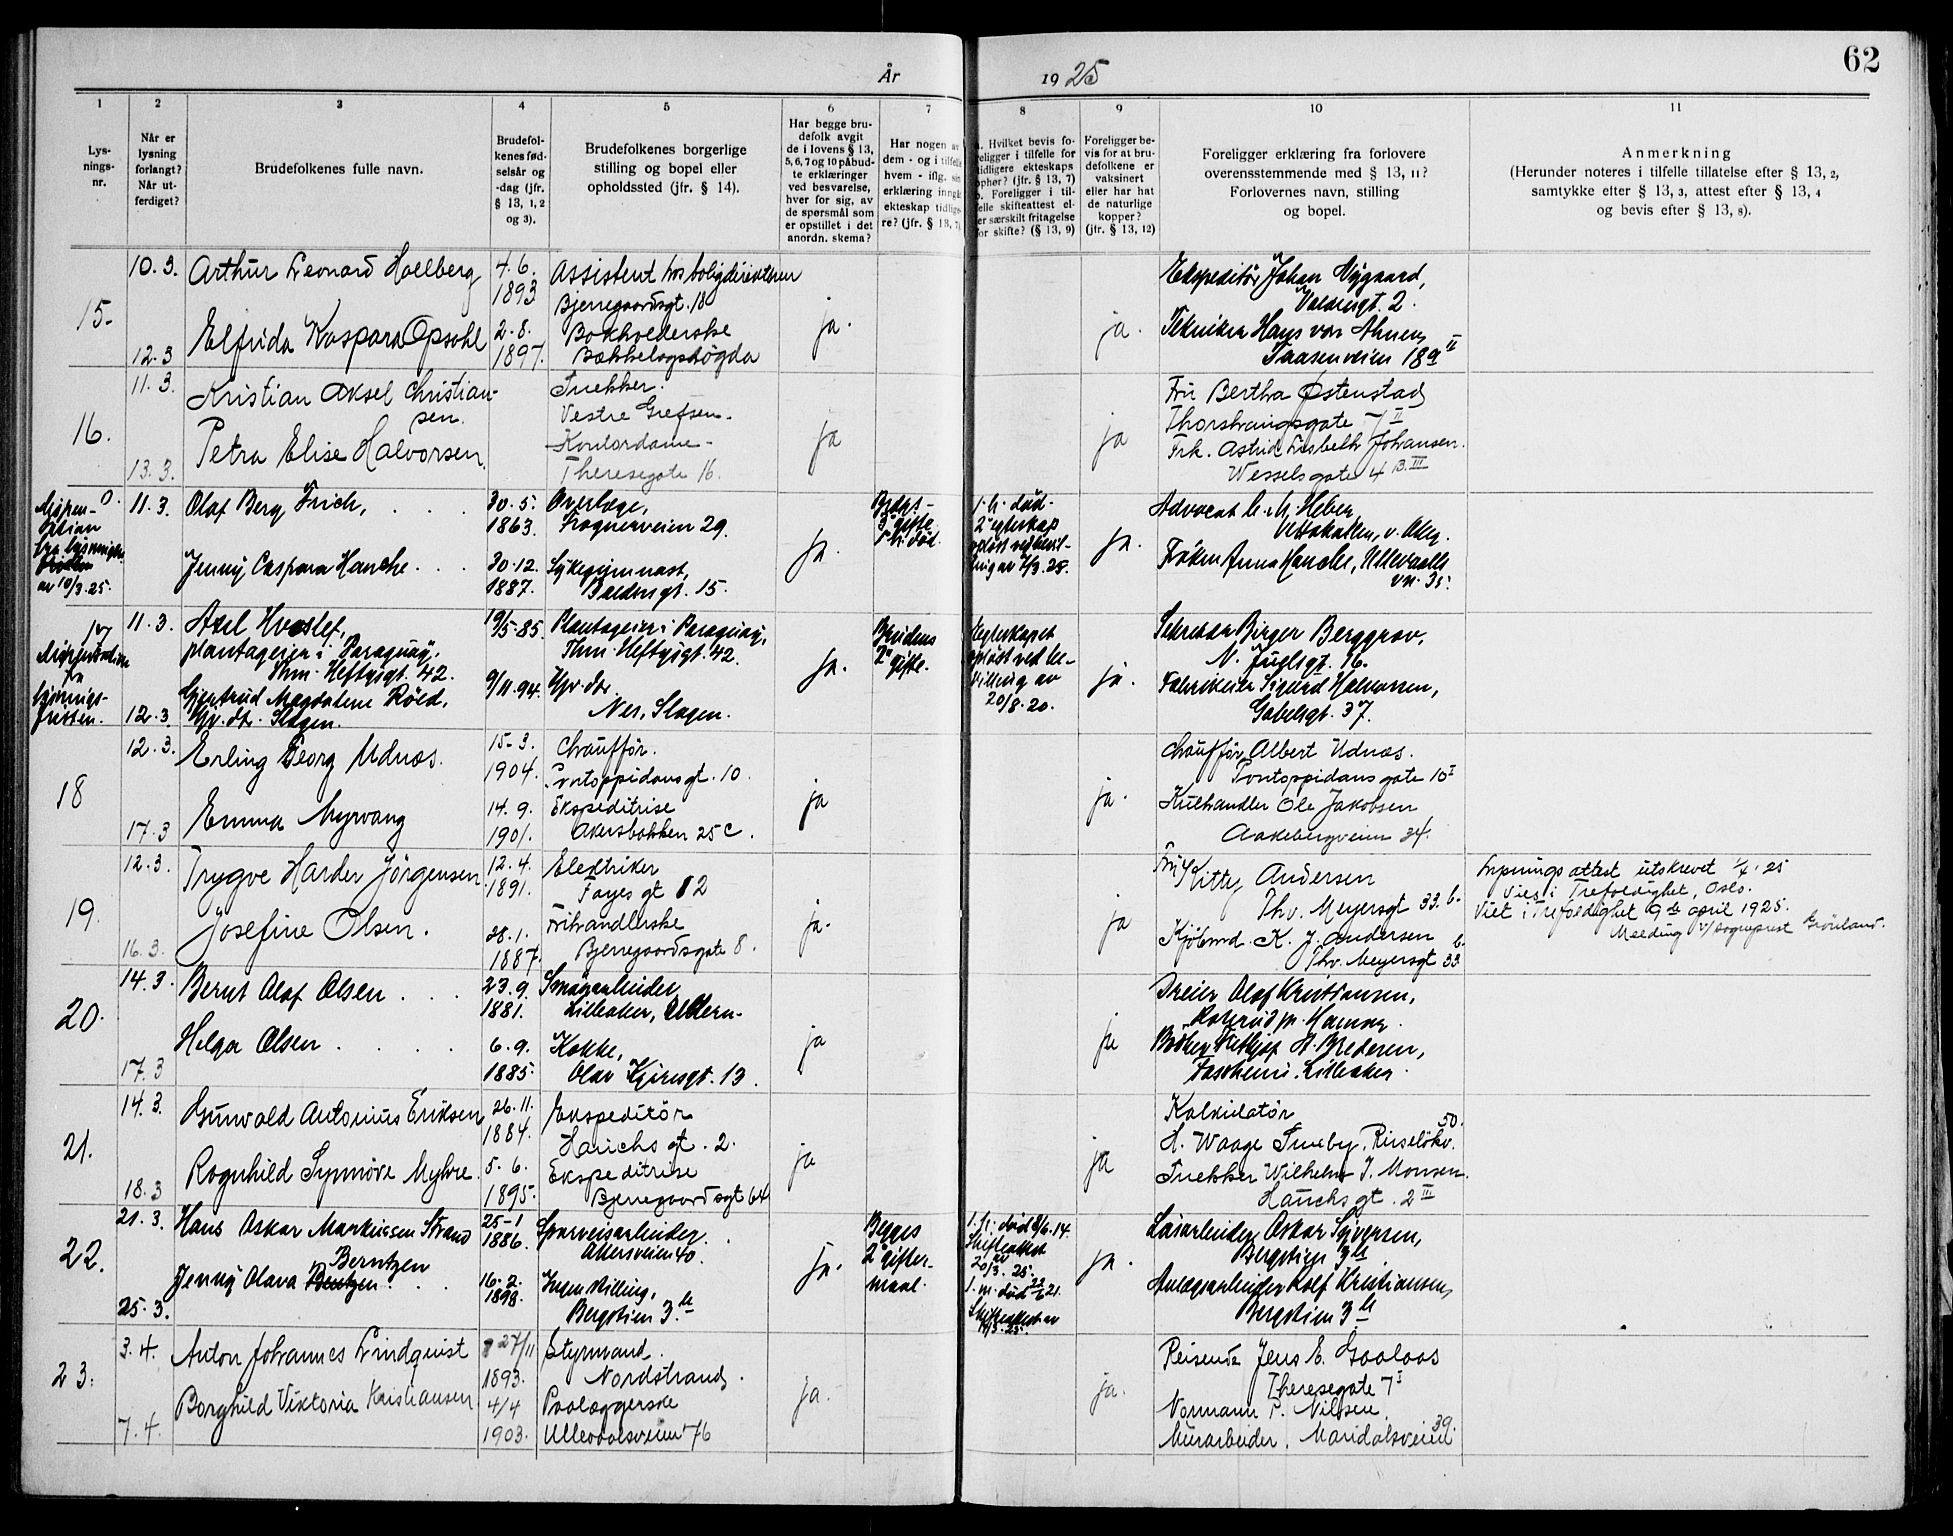 62
År 1925
1 2 3 4 5 6 7 8 9 10 11
Lys-
nings-
nr.
Når er
lysning
forlangt?
Når ut-
ferdiget?
Brudefolkenes fulle navn.
Brudefol-
kenes fød-
selsår og
-dag (jfr.
§ 13, 1, 2
og 3).
Brudefolkenes borgerlige
stilling og bopel eller
opholdssted (jfr. § 14).
Har begge bru-
defolk avgit
de i lovens § 13,
5, 6, 7 og 10 påbud-
te erklæringer
ved besvarelse,
hver for sig, av
de spørsmål som
er opstillet i det
anordn. skema?
Har nogen av
dem - og i tilfelle
hvem - iflg. sin
erklæring inngåt
ekteskap tidlige-
re? (jfr. § 13, 7)
a. Hvilket bevis fo-
religger i tilfelle for
tidligere ekteskaps
ophør? (jfr. § 13, 7)
b. Foreligger i til-
felle skifteattest el-
ler særskilt fritagelse
for skifte? (§ 13, 9)
Foreligger be-
vis for at bru-
defolkene er
vaksinert
eller har hat
de naturlige
kopper?
(jfr. § 13, 12)
Foreligger erklæring fra forlovere
overensstemmende med § 13, 11?
Forlovernes navn, stilling
og bopel.
Anmerkning
(Herunder noteres i tilfelle tillatelse efter § 13, 2,
samtykke efter § 13, 3, attest efter § 13, 4
og bevis efter § 13, 8).
15.
10.3.
12.3
Arthur Leonard Hallberg
Elfrida Kaspara Opsahl
4.6.
1893
2.8.
1897.
Assistent hos boligdirektøren
Bjerregaardsgt. 18
Bokholderske
Bækkelagshøgda
ja.
ja.
Ekspeditør Johan Nygaard,
Valdrisgt. 2.
Tekniker Hans von Ahnen,
Taasenveien 18a II
16.
11.3.
13.3.
Kristian Aksel Christian-
sen.
Petra Elise Halvorsen.
Snekker.
Vestre Grefsen.
Kontordame
Theresegate 16.
ja
ja
Fru Bertha Østenstad
II
Frk. Astrid Lisbeth Johansen.
Wesselsgate 4 B. III
Dispen-
sation
fra lysningen
av 10/3.25.
11.3.
Olaf Berg Frich,
Jenny Caspara Hanche
30.5.
1863.
30.12.
1887.
Overlæge,
Frognerveien 29.
Sykegymnast,
Baldersgt. 15.
ja.
Brudgs-
3die gifte
1. h. død.
1. h. død.
2 egteskap
opløst ved bevil-
ling av 7/3.25.
ja.
Advocat C. M. Heber
Vettakollen, v. Aker.
Frøken Anna Hanche, Ullevaals
vn. 31.
17
Dispensation
fra
lysnings-
fristen.
11.3.
12.3.
Axel Hvoslef,
plantageeier i Paraguay,
Thm. Heftyesgt. 42.
Gjertrud Magdalene Röed,
Gpr. dtr. Slagen.
19/5.85.
9/11.94.
Plantageeier i Paraguay,
Thm. Heftyesgt. 42.
Gpr. dtr.
Nes, Slagen.
ja.
Brudens
2det gifte.
Egteskapet
opløst ved be-
villing av
20/8.20.
ja.
Sekretær Birger Berggrav,
N. Juelsgt. 16.
Fabrikeier Sigurd Halvorsen,
Gabelsgt. 37.
18
12.3.
17.3
Erling Georg Udnæs.
Emma Myrvang
15-3.
1904.
14.9.
1901.
Chauffør.
Pontoppidansgt. 10.
Ekspeditrise
Akersbakken 25 C.
ja
ja.
Chauffør Albert Udnæs.
Pontoppidans gate 10 I
Kulhandler Ole Jakobsen
Aakebergveien 34.
19
12.3.
16.3.
Trygve Harder Jörgensen
Josefine Olsen.
12.4.
1891.
28.1.
1887.
Elektriker
Fayes gt 12
Frihandlerske
Bjerregaardsgate 8.
ja.
ja
Fru Kitty Andersen
Thv. Meyersgt 33. b.
Kjøbmd. K. J. Andersen
Thv. Meyersgt 33 b.
Lysningsattest utskrevet 1/4.25
Vies i Trefoldighet, Oslo.
Viet i Trefoldighet 9de april 1925.
Melding v/ sogneprest Grönland.
20.
14.3.
17.3
Bernt Olaf Olsen
Helga Olsen
23.9.
1881.
6.9.
1885.
Smøgarbeider
Lilleaker, Ullern.
Kokke,
Olav Kyrresgt. 13.
ja
ja
Dreier Olaf Kristiansen,
Bødker Fridtjof A. Bredesen,
Lilleaker.
21.
14.3.
18.3
Gunvald Antonius Eriksen
Ragnhild Synnöve Myhre.
26.11.
1884.
5.6.
1895.
Ekspeditör
Hauchs gt. 2.
Ekspeditrise
Bjerregaardsgt 64
ja
ja
Kalkulatør
50.
H. Waage Smeby, Pireslökv.
Snekker Wilhelm J. Monsen.
Hauchs gt. 2 III
22.
21.3.
25.3.
Hans Oskar Markussen Strand
Berntzen
Jenny Olava Bentzen.
25-1
1886.
16.2.
1898.
Sporveisarbeider.
Akersveien 40.
Ingen stilling,
Bergstien 3. b
ja.
Begges
2det gifter-
maal.
1. h. død 8/6.14.
Skifteattest
av
20/3.25.
1. m. død 22/6 21.
Skifteattest av
ja.
Løsarbeider Oskar Syversen,
Bergstien 3 b
Anlægsarbeider Rolf Kristiansen,
Bergstien 3 b
23.
3.4.
7.4.
Anton Johannes Lindquist
Borghild Viktoria Kristiansen
27/11
1893.
4/4
1903.
Styrmand.
Nordstrand.
Paalæggerske
Ullevolsveien 76
ja.
ja.
Reisende Jens E. Gaalaas
Theresegate 7 I
Normann P. Nilsen.
39.
Murarbeider. Maridalsveien